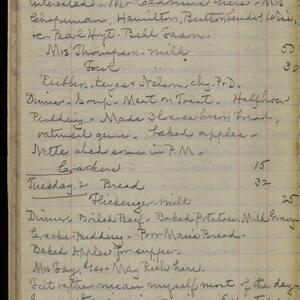 interested. Mr Leadbrine here - Mrs
Chapman, Hamilton, Burtenender, Wise,
&c. Pearl Hoyt. Bill Eason.
Mrs Thompson milk 50
Fowl
Rubbers, Keyes & Nelson, chg. P.D.
Dinner. Soup - Meat on Toast. Half hour
Pudding - Made 3 loaves brown bread,
oatmeal gems. baked apples.
Nette abed some in P.M.
Crackers 15
Tuesday 2 Bread 32
Flickenger milk 25
Dinner Dried Beef - Baked Potatoes, Milk Gravy
Cracker Pudding - Poor Man's Bread -
Baked Apples for supper.
Mrs Fay, Geo - May Rich here.
Felt rather mean myself most of the day -